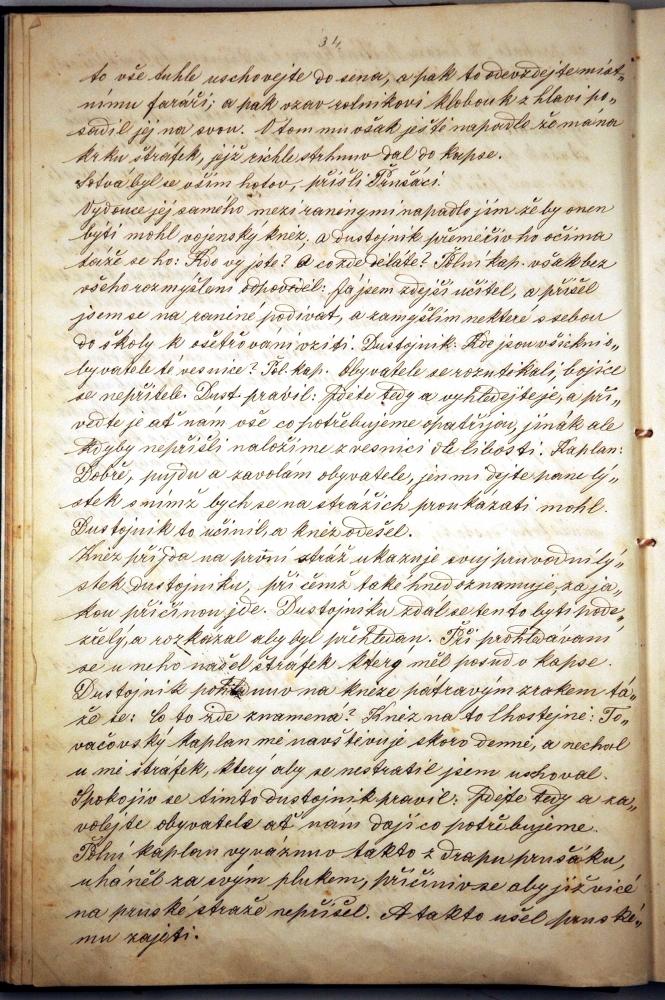 34.
to vše tuhle uschovejte do sena, a pak to odevzdejte míst„
nímu faráři; a pak vzav rolnikovi klobouk z hlavi po„
sadil jej na svou. O tom mu však ješte napadlo že má na
krku štráfek, jejž richle strhnuv dal do kapse.
Sotva byl se vším hotov, přišli Prušáci.
Vydouce jej samého mezi ranínymi napadlo jim že by onen
býti mohl vojenský knéz, a dustojnik přeméčiv ho očima
táže se ho: Kdo vy jste? a co zde déláte? Polní kap. však bez
všeho rozmyšlení odpovédél: Já jsem zdejší učitel, a přišel
jsem se na ranéné podívat, a zamyšlím nektere s sebou
do školy k ošetřovaní vzíti. Dustojnik: Kdo jsou všickni o„
byvatele té vesnice? Pol. kap. Obyvatele se rozutíkali, bojíce
se nepřítele. Dust pravil: Jdéte tedy a vyhledejte je, a při„
vedte je ať nám vše co potřebujeme opatřijou, jinák ale
kdyby nepřišli naložíme z vesnici dle libosti. Kaplan:
Dobré, pujdu a zavolám obyvatele, jen mi dejte pane lý„
stek s nímž bych se na strážích proukázati mohl.
Dustojnik to učinil, a knéz odešel.
Knéz přijda na první stráž ukazuje svuj pruvodní lý„
stek dustojniku, při čemž také hned oznamuje, za ja„
kou příčinou jde. Dustojniku zdal se tento býti pode„
zřelý, a rozkázal aby byl přehledán. Při prohledávaní
se u neho našel štráfek který mél posud v kapse.
Dustojnik pohlednuv na knéze pátravým zrakem tá„
že se: Co to zde znamená? Knéz na to lhostejné: To„
vačovský kaplan mé navštévuje skoro denné, a nechal
u mé štráfek, který aby se nestratil jsem uschoval.
Spokojiv se tímto dustojnik pravil: Jdéte tedy a za„
volejte obyvatele ať nám dají co potřebujeme.
Polní kaplan vyváznuv takto z drapu prušáku,
uhánél za svým plukem, přičiniv se aby již více
na pruské straže nepřišel. A takto ušel pruské„
mu zajeti.